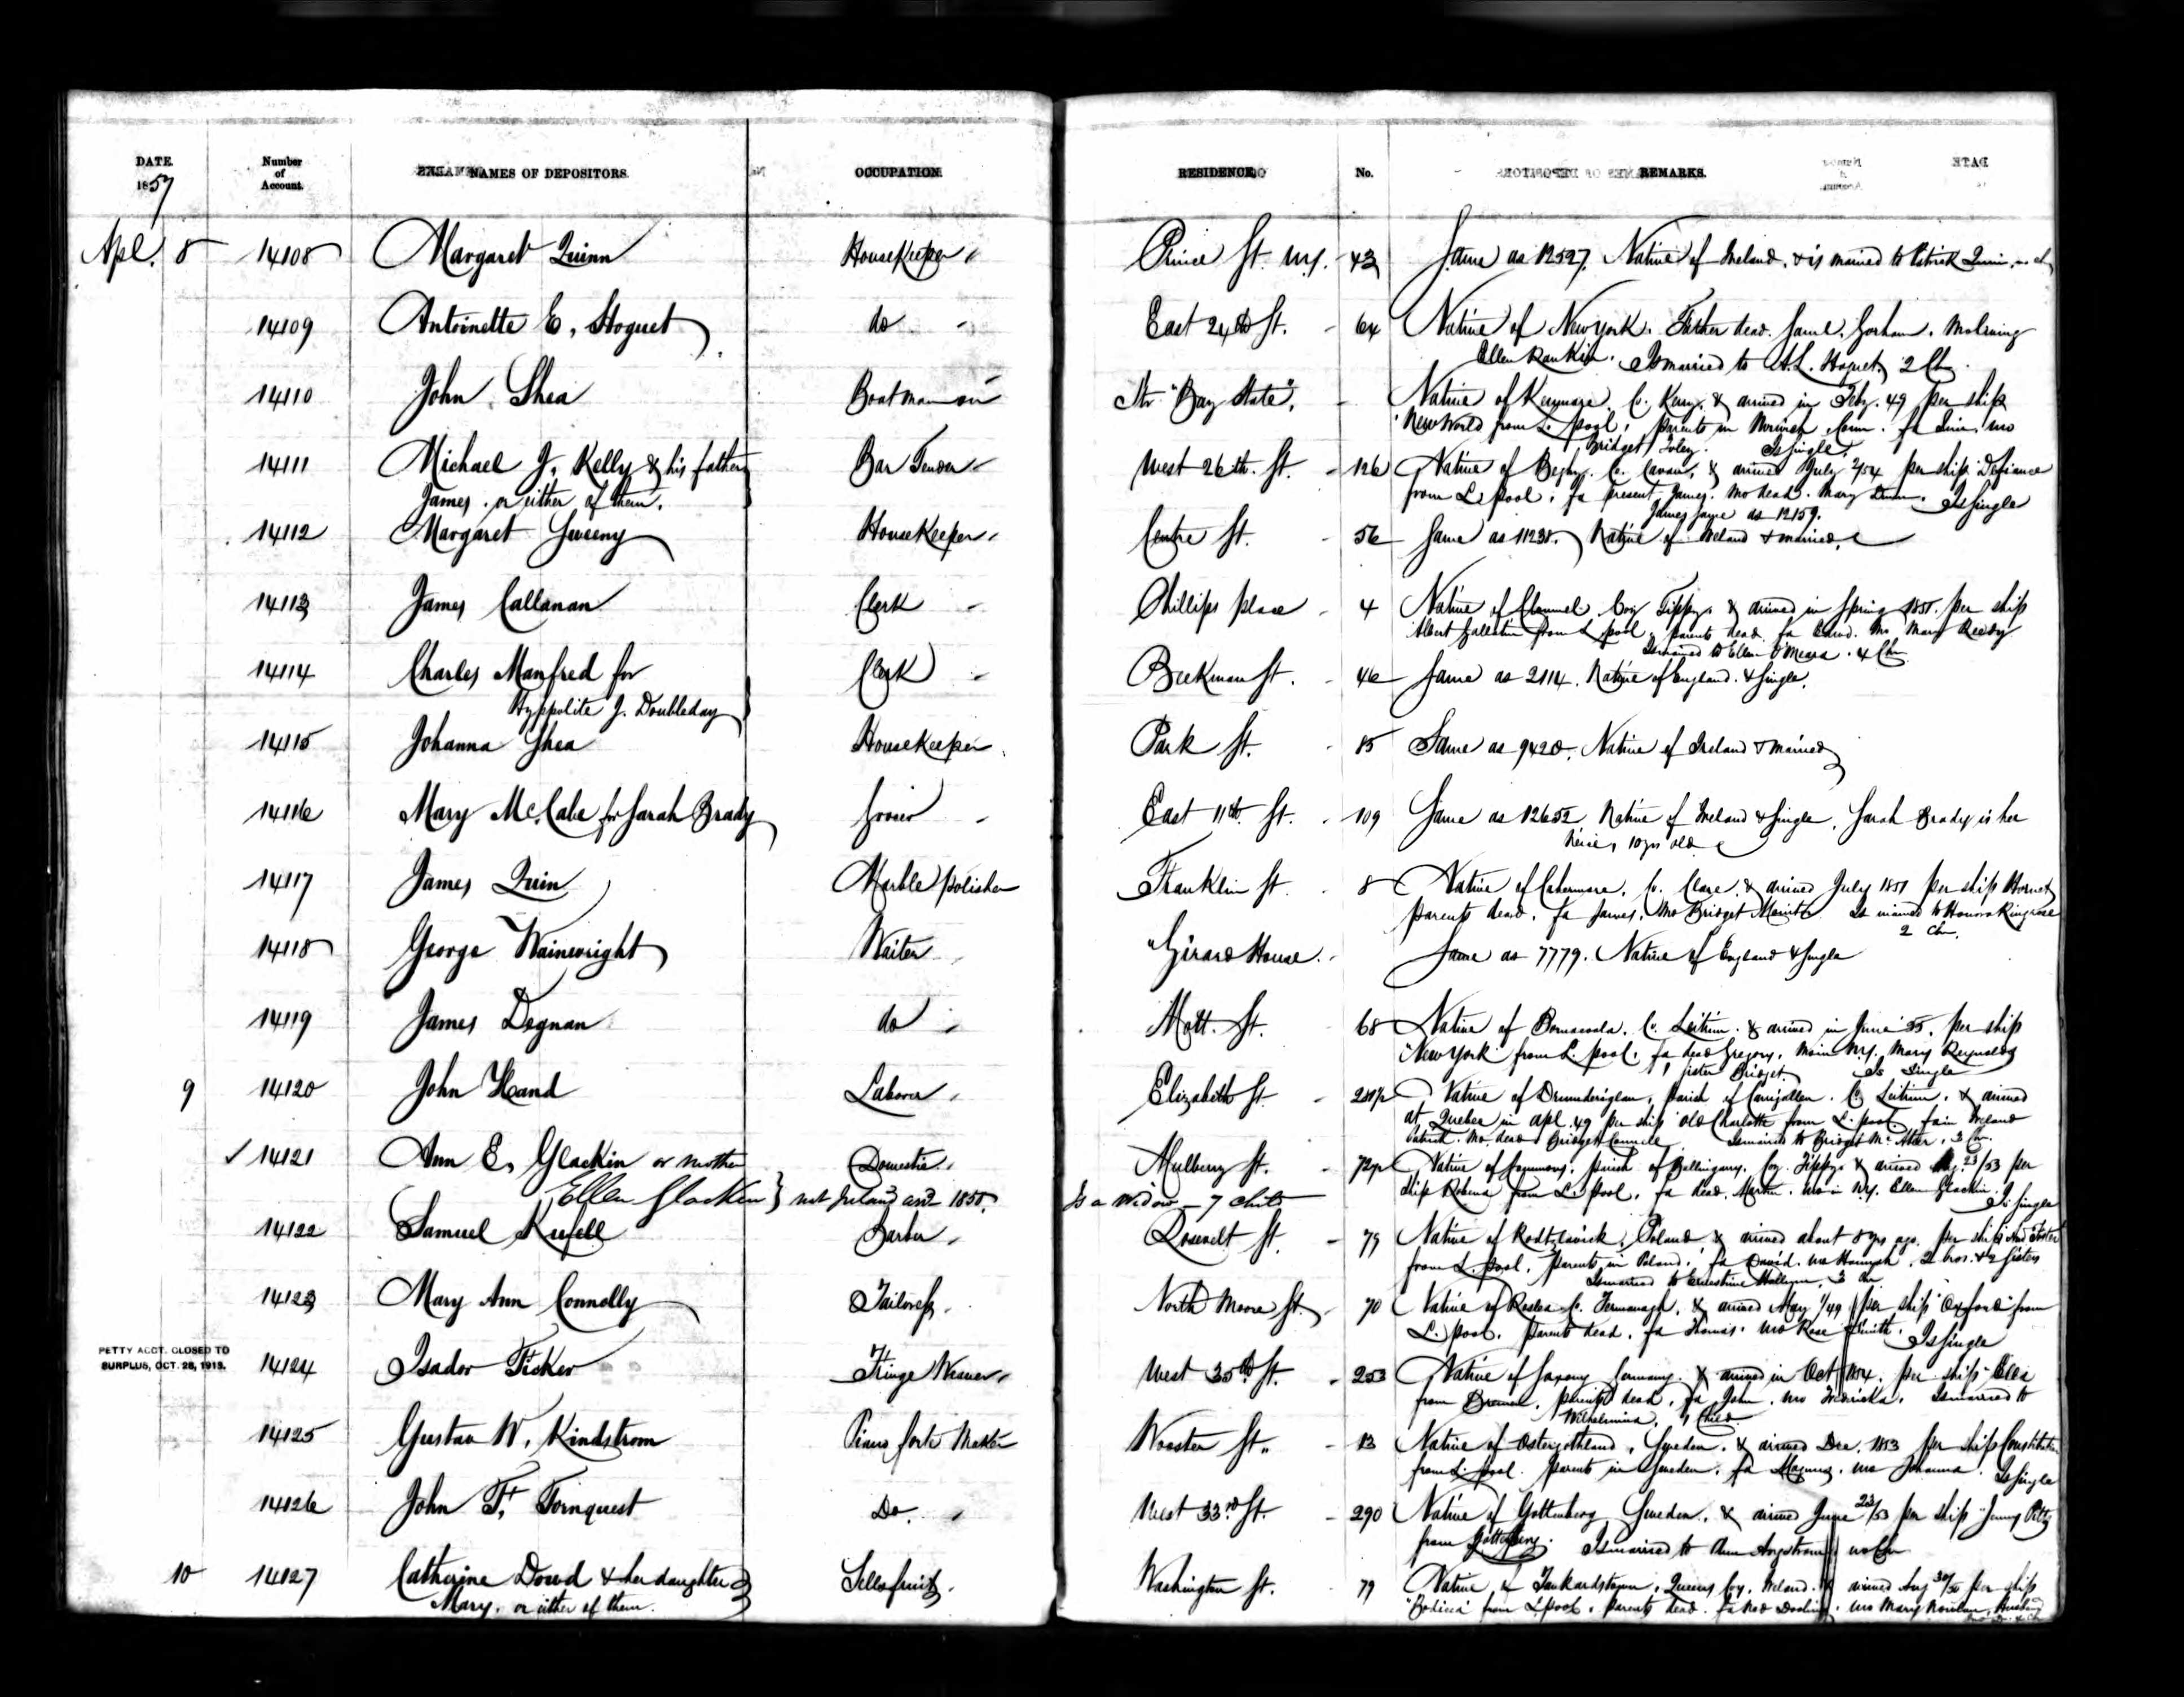 DATE. 1857
Number of Account.
NAMES OF DEPOSITORS.
OCCUPATION.
RESIDENCE.
No.
REMARKS.
Apl. 8 14108 Margaret Quinn Housekeeper Prince St. N.Y. 43 Same as 12527. Native of Ireland, & is married to Patrick Quinn, no ch
14109 Antoinette E. Hoguet do East 24th St. 64 Native of New York. Father dead. Saml. Gorham. Mo living
Ellen Rankin. Is married to A.L. Hoguet, 2 Ch
14110 John Shea Boatman on Str "Bay State". Native of Kenmare, Co. Kerry, & arrived in Feby. 49 per ship
"New World from L. pool, parents in Norwich, Conn. fa mo
Bridget Foley. Is single
14111 Michael J. Kelly & his father Bar Tender West 26th. St. 126 Native of Co. Cavan, & arrived July /54 per ship Defiance
James, or either of them. from L. pool, fa present James. Mo dead. Mary Is single
James same as 12159.
14112 Margaret Sweeny Housekeeper Centre St. 56 Same as 11238. Native of Ireland & married.
14113 James Callanan Clerk Phillips place 4 Native of Clonmel. Coy Tippy. & arrived in Spring 1851. per ship
Albert Gallatin from L pool, parents dead. fa Edwd. Mo Mary Reedy
Is married to Ellen O'Meara. 4 Ch
14114 Charles Manfred for Clerk Beekman St. 46 Same as 2114. Native of England. & single.
Hyppolite J. Doubleday
14115 Johanna Shea Housekeeper Park St. 85 Same as 9420. Native of Ireland & married
14116 Mary McCabe for Sarah Brady Grocer East 11th. St. 109 Same as 12652 Native of Ireland & single. Sarah Brady is her
Neice, 10 yrs old
14117 James Quin Marble polisher Franklin St. 8 Native of Co. Clare, & arrived July 1851 per ship Hornet
parents dead. fa James, Mo Bridget Is married to Honora Ringrose
2 Ch.
14118 George Wainwright Waiter "Girard House. Same as 7779. Native of England & single
14119 James Degnan do Mott. St. 68 Native of Co. Leitrim. & arrived in June 55, per ship
"New York" from L. pool, fa dead Gregory, Mo in N.Y. Mary Reynolds
1 sister Bridget. Is single
9 14120 John Hand Laborer Elizabeth St. Native of parish of Carrigallen. Co Leitrim, & arrived
at Quebec in Apl. 49 per ship Old Charlotte from L. pool fa in Ireland
Patrick. Mo. dead Bridget Is married to Bridget 3 Ch.
14121 Ann E. Glackin or mother Domestic Mulberry St. Native of parish of Ballingarry. Coy. Tippy & arrived Aug. 23/53 per
Ellen Glacken } nat Ireland arrd 1850. Is a widow - 7 childn ship from L. pool, fa dead, Martin. Mo in N.Y. Ellen Glackin. Is single
14122 Samuel Barber Rosevelt St. 79 Native of Poland & arrived about 8 yrs ago. per ship
from L. pool, parents in Poland, fa David. Mo Hannah. 2 bros. & 2 sisters
Is married to Ernestine 3 Ch
14123 Mary Ann Connolly Tailoress North Moore St. 70 Native of Roslea Co. Fermanagh, & arrived May 1/49 per ship "Oxford" from
L. pool, parents dead, fa Thomas. Mo Rose Smith. Is single
PETTY ACCT. CLOSED TO
SURPLUS, OCT. 28, 1913.
14124 Isador Ficker Fringe Weaver West 35th St. 253 Native of Saxony Germany. & arrived in Oct 1854. per ship "Elsa
from Bremen, parents dead, fa John. Mo Fredricka. Is married to
Wilhelmina, 1 Child
14125 Gustav W. Kindstrom Piano forte Maker Wooster St. 13 Native of Ostergothland, Sweden. & arrived Dec. 1853 per ship Constitution
from L. pool. parents in Sweden. fa Magnus. Mo Johanna. Is single
14126 John F. Tornquest Do. West 33rd St. 290 Native of Gottenberg Sweden. & arrived June 23/53 per ship "Jenny
from Gottenberg. Is married to Ann Angstrom no Ch
10 14127 Catherine Dowd & her daughter Sells fruit Washington St. 79 Native of Tankardstown, Queens Coy. Ireland. & arrived Aug 30/50 per ship
Mary, or either of them. "Bodicea" from L. pool, parents dead. fa Mo Mary